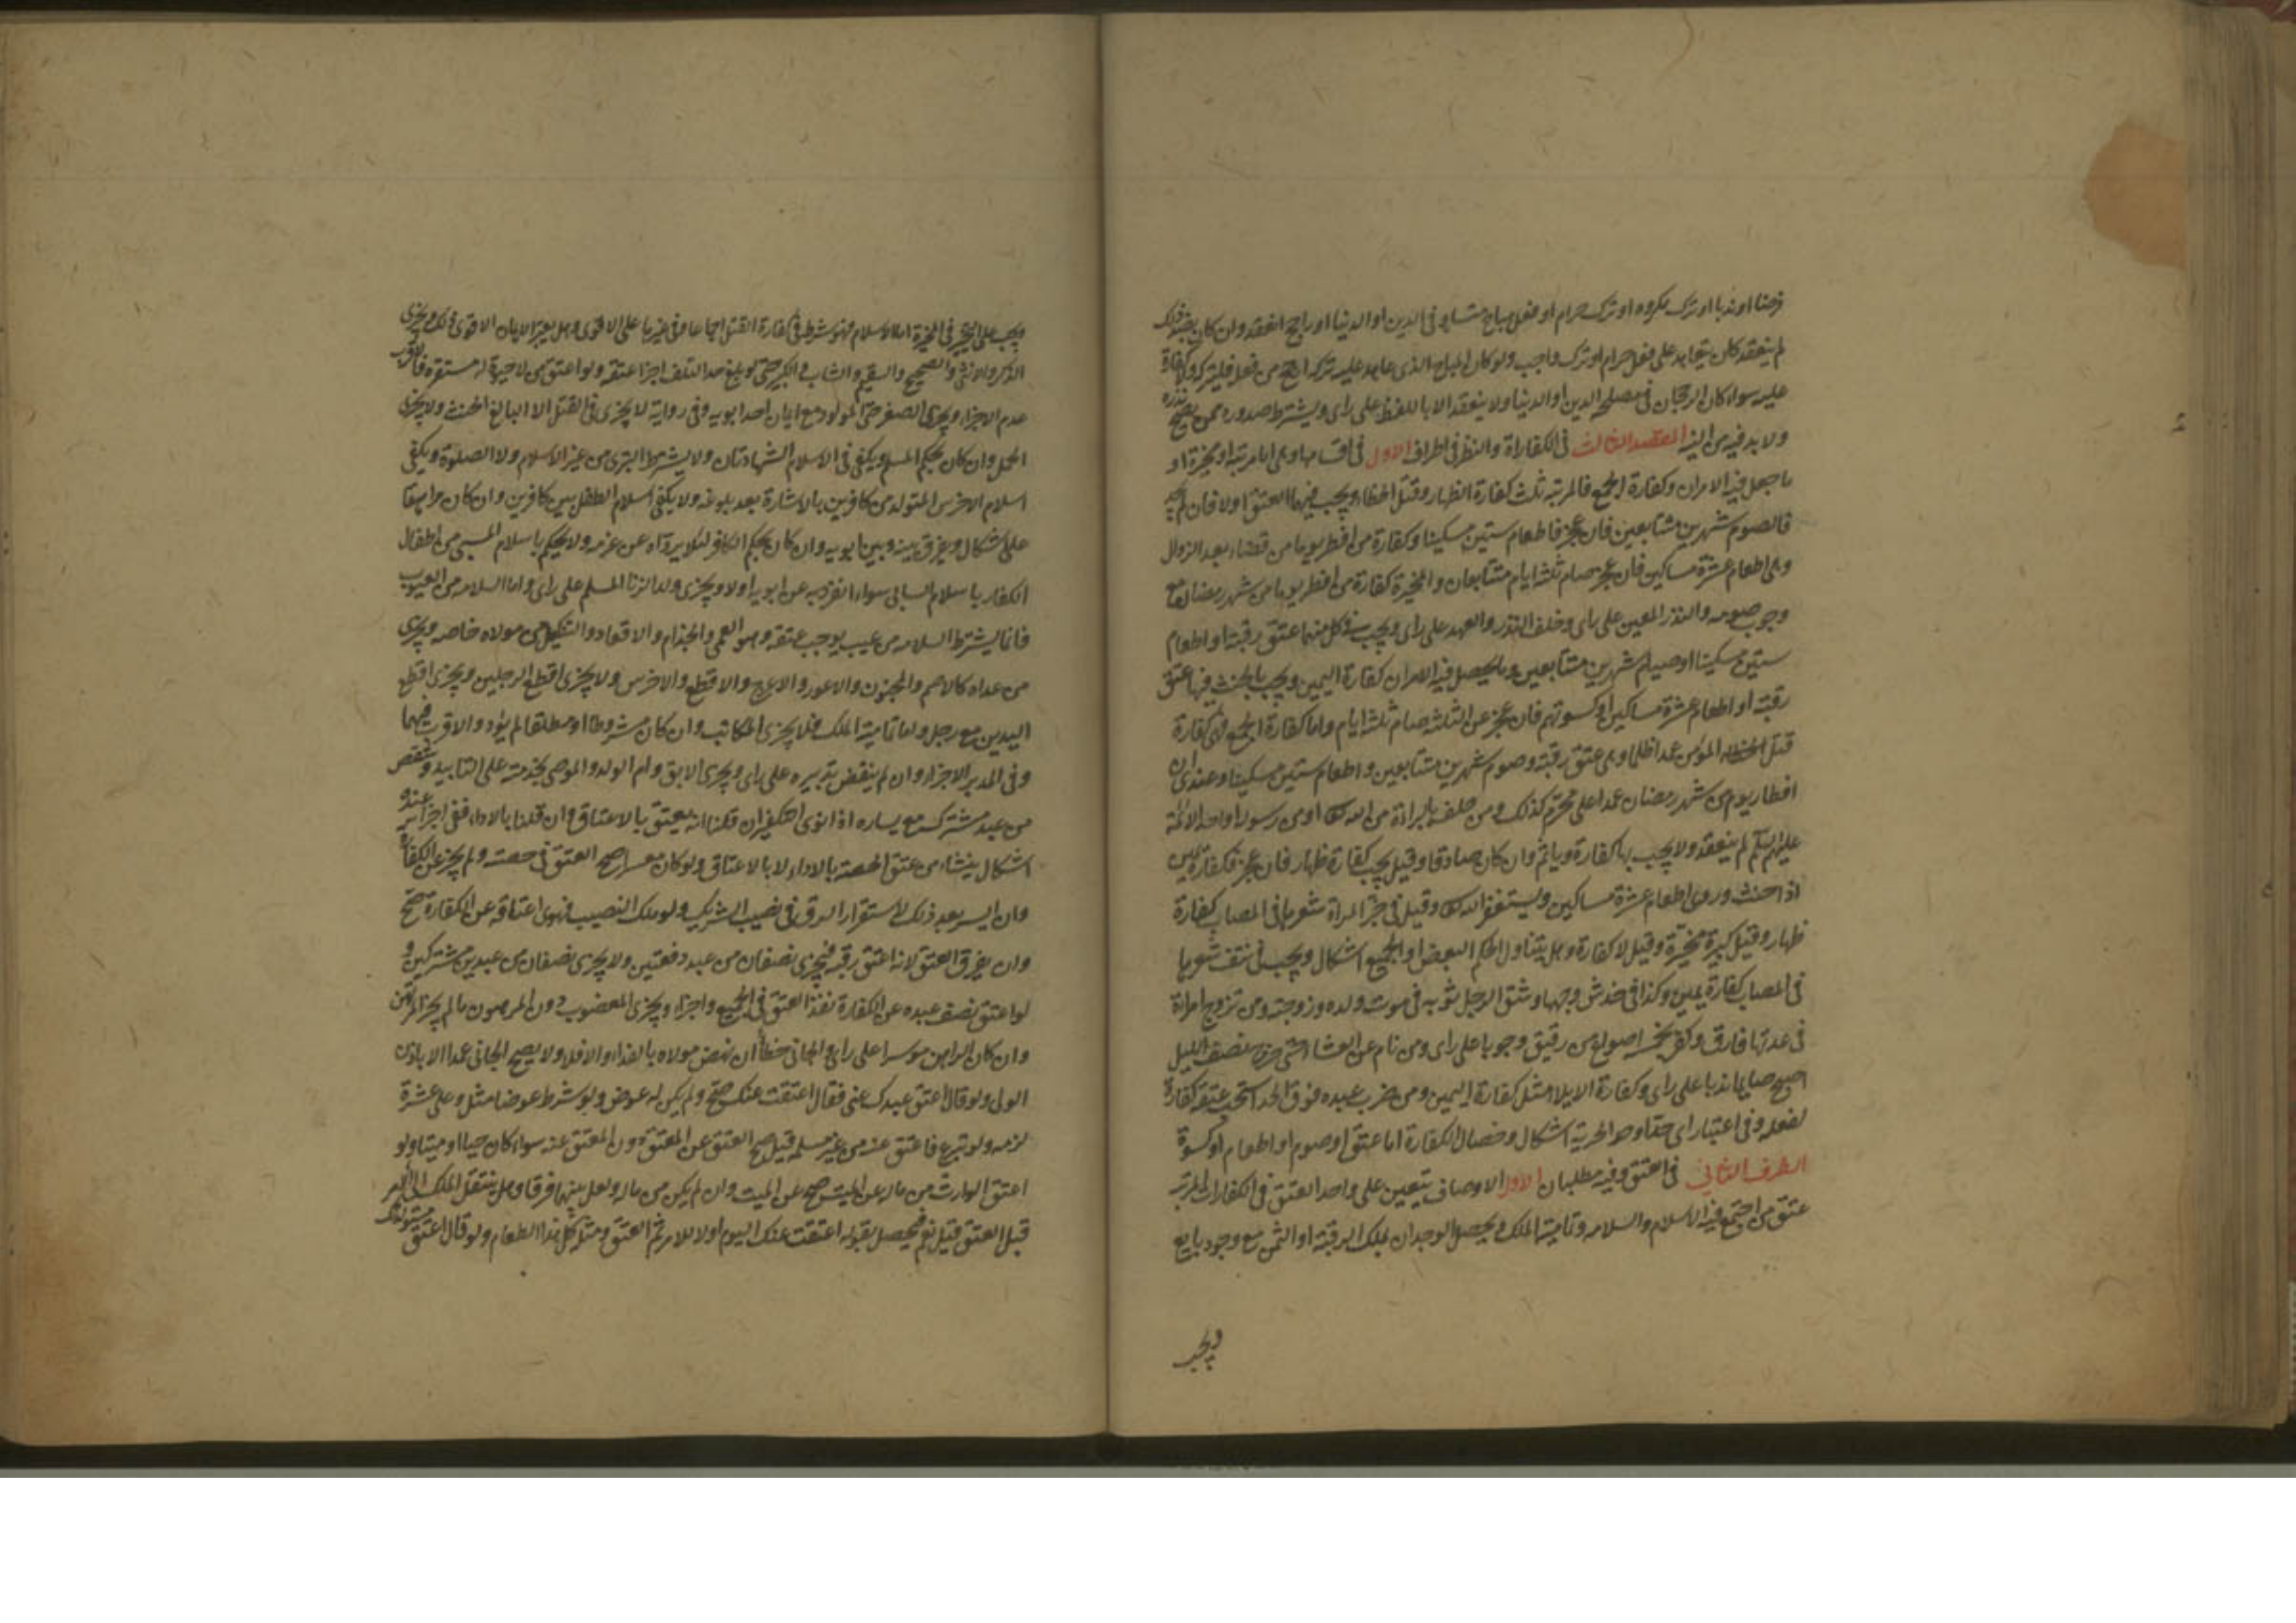 فرضا او ندبا او ترك مكروه او ترك حرام او فعل مباح متساو فى الدين او الدنيا او راجح انعقد وان كان بضد ذلك
لم ينعقد كان يتعاهد على فعل حرام او ترك واجب ولو كان المباح الذى عاهد عليه تركه ارجح من فعله فليتركه ولا كفارة
عليه سواء كان الرجحان فى مصلحة الدين او الدنيا ولا ينعقد الا باللفظ على راى ويشترط صدوره ممن يصح نذره
ولا بد فيه من النية المقصد الثالث فى الكفاراة والنظر فى اطراف الاول فى اقسامها وهى اما مرتبة او مخيرة او
ما حصل فيه الامران وكفارة الجمع فالمرتبة ثلث كفارة الظهار وقتل الخطاء ويجب فيهما العتق اولا فان لم يجد
فالصوم شهرين متتابعين فان عجز فاطعام ستين مسكينا وكفارة من افطر يوما من قضاء بعد الزوال
وهى اطعام عشرة مساكين فان عجز صام ثلثة ايام متتابعات والمخيرة كفارة من افطر يوما من شهر رمضان مع
وجوب صومه والنذر المعين على راى وخلف النذر والعهد على راى ويجب فى كل منهما عتق رقبة او اطعام
ستين مسكينا او صيام شهرين متتابعين وما يحصل فيه الامران كفارة اليمين ويجب بالحنث فيها عتق
رقبة او اطعام عشرة مساكين او كسوتهم فان عجز عن الثلثة صام ثلثة ايام واما كفارة الجمع فهى كفارة
قتل المؤمن عمدا ظلما وهى عتق رقبة وصوم شهرين متتابعين واطعام ستين مسكينا وعندى ان
افطار يوم من شهر رمضان عمدا على محرم كذلك ومن حلف بالبراءة من الله تعالى او من رسوله او احد الائمة
عليهم السلم لم ينعقد ولا يجب بها كفارة وياثم وان كان صادقا وقيل يجب كفارة ظهار فان عجز فكفارة يمين
اذا حنث وروى اطعام عشرة مساكين ويستغفر الله تعالى وقيل فى جز المراة شعرها فى المصاب كفارة
ظهار وقيل كبيرة مخيرة وقيل لا كفارة وهل يتناول الحكم البعض او الجميع اشكال ويجب فى نتف شعرها
فى المصاب كفارة يمين وكذا فى خدش وجهها وشق الرجل ثوبه فى موت ولده وزوجته ومن تزوج امراة
فى عدتها فارق وكفر بخمسه اصوع من دقيق وجوبا على راى ومن نام عن العشا حتى خرج نصف الليل
اصبح صايما ندبا على راى وكفارة الايلا مثل كفارة اليمين ومن ضرب عبده فوق الحد استحب عتقه كفارة
لفعله وفى اعتبار اى حد او حد الحرية اشكال وخصال الكفارة اما عتق او صوم او اطعام او كسوة
الطرف الثانى فى العتق وفيه مطلبان الاول الاوصاف يتعين على واحد العتق فى الكفارات المرتبة
عتق من اجتمع فيه الاسلام والسلامه وتمامية الملك ويحصل الوجدان بملك الرقبة او الثمن مع وجود بايع
ويجب
ويجب على المخير فى المخيرة اما الاسلام فهو شرط فى كفارة القتل اجماعا وفى غيرها على الاقوى وهل يعتبر الايمان الاقوى ذلك ويجزى
الذكر والانثى والصحيح والسقيم والشاب والكبير حتى لو بلغ حد التلف اجزأ عتقه ولو اعتق من لا حيوة له مستقرة فالاقرب
عدم الاجزاء ويجزى الصغير حتى المولود مع ايمان احد ابويه وفى رواية لا يجزى فى القتل الا البالغ الحنث ولا يجزى
الحمل وان كان بحكم المسلم ويكفى فى الاسلام الشهادتان ولا يشترط التبرى من غير الاسلام ولا الصلوة ويكفى
اسلام الاخرس المتولد من كافرين بالاشارة بعد بلوغه ولا يكفى اسلام الطفل بين كافرين وان كان مراهقا
على اشكال ويفرق بينه وبين ابويه وان كان بحكم الكافر لئلا يرداه عن عزمه ولا يحكم باسلام المسبى من اطفال
الكفار باسلام السابى سواء انفرد به عن ابويه او لا ويجزى ولد الزنا المسلم على راى واما السلامه من العيوب
فانما يشترط السلامه من عيب يوجب عتقه وهو العمى والجذام والاقعاد والتنكيل من مولاه خاصه ويجزى
من عداه كالاصم والمجنون والاعور والاعرج والاقطع والاخرس ولا يجزى اقطع الرجلين ويجزى اقطع
اليدين مع رجل واما تمامية الملك فلا يجزى المكاتب وان كان مشروطا او مطلقا لم يؤد والاقرب فيهما
وفى المدبر الاجزاء وان لم ينقض تدبيره على راى ويجزى الابق وام الولد والموصى بخدمته على التابيد وشقص
من عبد مشترك مع يساره اذا نوى التكفير ان قلنا انه ينعتق بالاعتاق وان قلنا بالاداء ففى اجزائه عنده
اشكال ينشاء من عتق الحصة بالاداء لا بالاعتاق ولو كان معسرا صح العتق فى حصته ولم يجز عن الكفارة
وان ايسر بعد ذلك لاستقرار الرق فى نصيب الشريك ولو ملك النصيب فنوى اعتاقه عن الكفارة صح
وان يفرق العتق لانه اعتق رقبة فيجزى نصفان من عبد دفعتين ولا يجزى نصفان من عبدين مشتركين و
لو اعتق نصف عبده عن الكفارة نفذ العتق فى الجميع واجزاء ويجزى المغصوب دون المرهون ما لم يجز المرتهن
وان كان الراهن موسرا على راى والجانى خطأ ان نهض مولاه بالفداء والا فلا ولا يصح الجانى عمدا الا باذن
الولى ولو قال اعتق عبدك عنى فقال اعتقت عنك صح ولم يكن له عوض ولو شرط عوضا مثل وعلى عشرة
لزمه ولو تبرع فاعتق عنه من غير مسئلة قيل صح العتق عن المعتق دون المعتق عنه سواء كان حيا او ميتا ولو
اعتق الوارث من ماله عن الميت صح عن الميت وان لم يكن من ماله ولعل بينهما فرقا وهل ينتقل الملك الى الامر
قبل العتق قيل نعم فيحصل بقوله اعتقت عنك اليوم اولا للامر ثم العتق ومثله كل هذا الطعام ولو قال اعتق مستولدتك